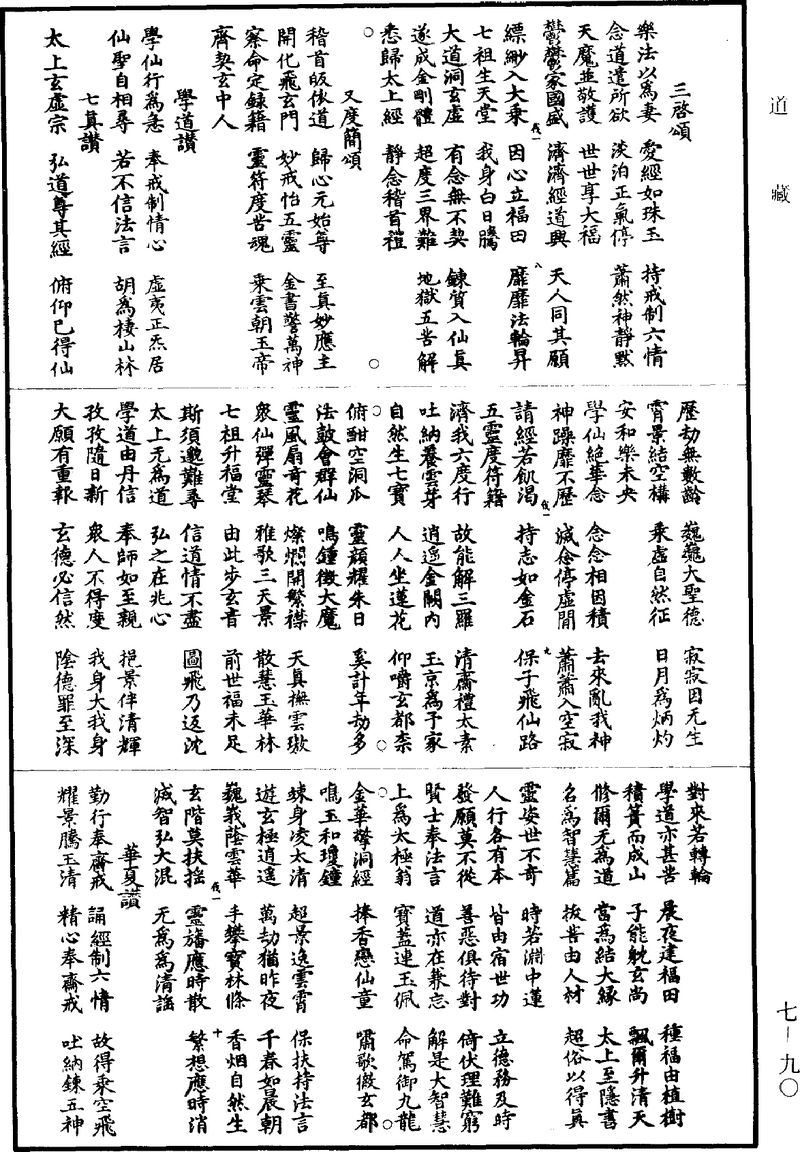 道藏
三啓頌
樂法以爲妻 愛經如珠玉 持戒制六情
念道遣所欲 淡泊正氣停 蕭然神靜默
天魔並敬護 世世享大福
鬱鬱家國盛 濟濟經道興 天人同其願
縹緲入大乘 因心立福田 靡靡法輪昇
七祖生天堂 我身白日騰
大道洞玄虛 有念無不契 鍊質入仙真
遂成金剛體 超度三界難 地獄五苦解
悉歸太上經 靜念稽首禮
又度簡頌
稽首皈依道 歸心元始尊 至真妙應主
開化飛玄門 妙戒怡五靈 金書警萬神
察命定錄籍 靈符度苦魂 乘雲朝玉帝
齊契玄中人
學道讚
學仙行爲急 奉戒制情心 虛夷正炁居
仙聖自相尋 若不信法言 胡爲棲山林
七真讚
太上玄虛宗 弘道尊其經 俯仰已得仙
歷劫無數齡 巍巍大聖德 寂寂因无生
霄景結空構 乘虛自然征 日月爲炳灼
安和樂未央 念念相因積 去來亂我神
學仙絶華念 滅念停虛閒 蕭蕭入空寂
神躁靡不歷
請經若飢渴 持志如金石 保子飛仙路
五靈度符籍
濟我六度行 故能解三羅 清齋禮太素
吐納養雲芽 逍遥金闕內 玉京爲予家
自然生七寶 人人坐蓮花 仰嚼玄都柰
俯酣空洞瓜 靈顔耀朱日 奚計年劫多
法鼓會群仙 鳴鍾徵大魔
靈風扇奇花 燦爛開繁襟 天真撫雲璈
衆仙彈靈琴 雅歌三天景 散慧玉華林
七祖升福堂 由此步玄音 前世福未足
斯須邈難尋 信道情不盡 圖飛乃返沈
太上无爲道 弘之在兆心
學道由丹信 奉師如至親 挹景伴清輝
孜孜隨日新 衆人不得度 我身大我身
大願有重報 玄德必信然 陰德罪至深
對來若轉輪
學道亦甚苦 晨夜建福田 種福由植樹
積簣而成山 子能耽玄尚 飄爾升清天
修爾无爲道 當爲結大緣 太上至隱書
名爲智慧篇 拔苦由人材 超俗以得真
靈姿世不奇 時若淵中蓮
人行各有本 皆由宿世功 立德務及時
發願莫不從 善惡俱待對 倚伏理難窮
賢士奉法言 道亦在兼忘 解是大智慧
上爲太極翁 寶蓋連玉佩 命駕御九龍
金華擎洞經 捧香戀仙童 嘯歌徹玄都
鳴玉和瓊鐘
竦身凌太清 超景逸雲霄 保扶持法言
遊玄極逍遥 萬劫猶昨夜 千春如晨朝
巍峩蔭雲華 手攀寶林條 香烟自然生
玄階莫扶搖 靈旛應時散 繁想應時消
滅智弘大混 无爲爲清謡
華夏讚
勤行奉齋戒 誦經制六情 故得乘空飛
耀景騰玉清 精心奉齋戒 吐納鍊五神
七-九〇